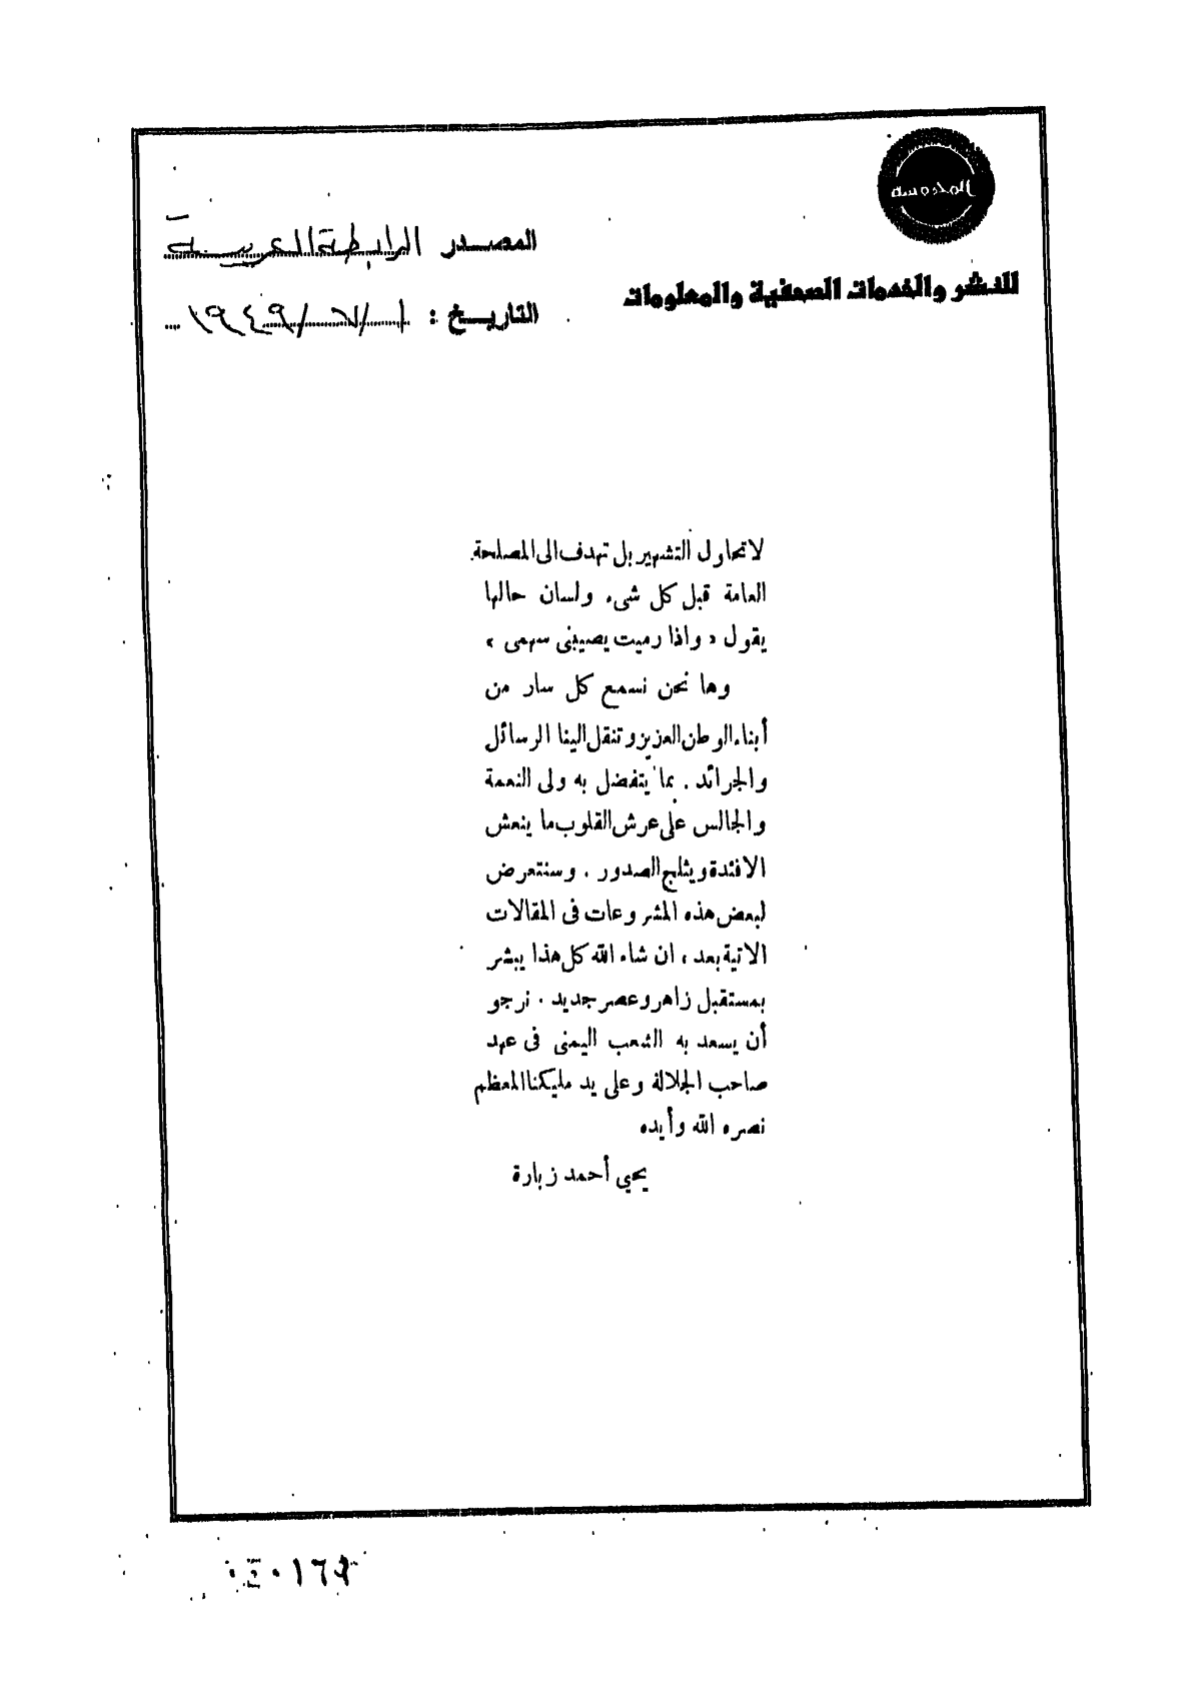 المحروسة
للنشر والخدمات الصحفية والمعلومات
المصدر الرابطة العربية
التاريخ : ١/٧/١٩٤٩
لا تحاول التشهير بل تهدف الى المصلحة
العامة قبل كل شىء ولسان حالها
يقول « واذا رميت يصيبنى سهمى »
وها نحن نسمع كل سار من
أبناء الوطن العزيز وتنقل الينا الرسائل
والجرائد . بما يتفضل به ولى النعمة
والجالس على عرش القلوب ما ينعش
الافئدة ويثلج الصدور . وسنتعرض
لبعض هذه المشروعات فى المقالات
الاتية بعد ، ان شاء الله كل هذا يبشر
بمستقبل زاهر وعصر جديد . نرجو
أن يسعد به الشعب اليمنى فى عهد
صاحب الجلالة وعلى يد مليكنا المعظم
نصره الله وأيده
يحيي أحمد زبارة